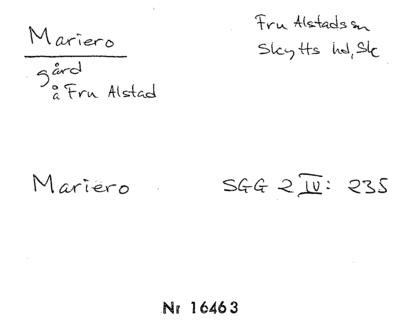 Mariero
gård
å Fru Alstad
Fru Alstads sn
Skytts hd, Sk
Mariero SGG 2 IV: 235
Nr 16463